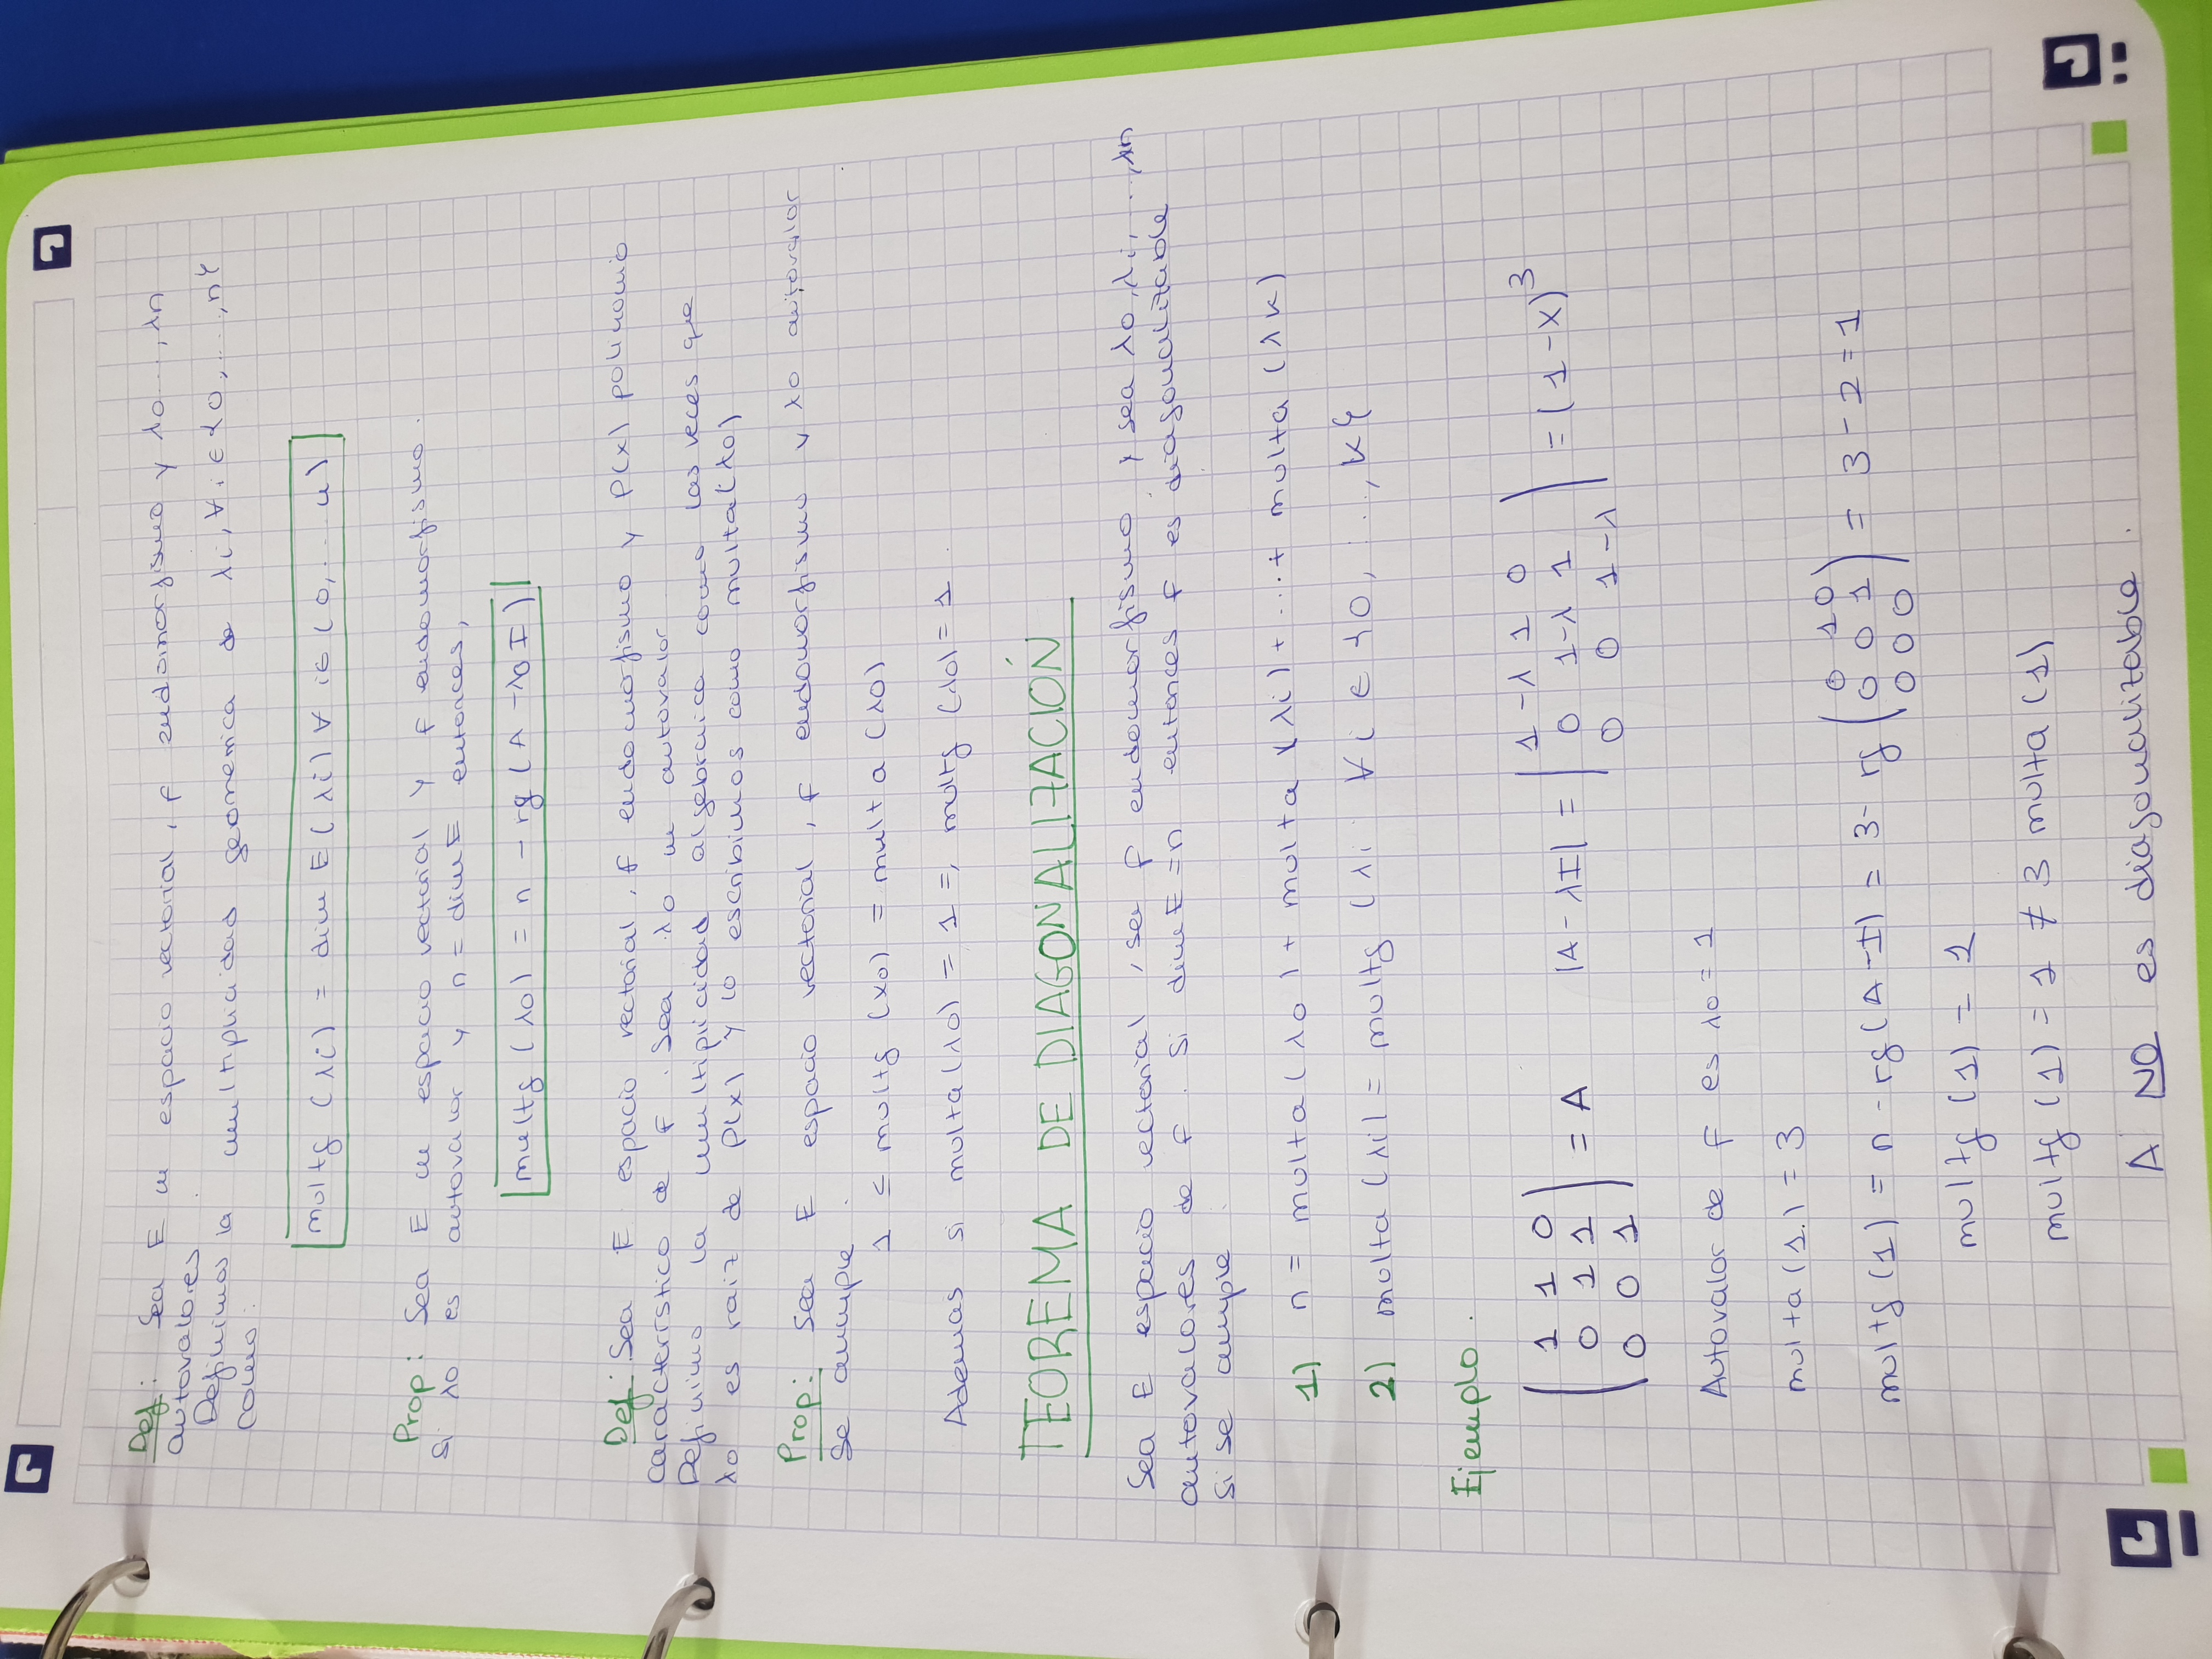 Def: Sea E un espacio vectorial, f endomorfismo y λ0....,λn
autovalores.
Definimos la multiplicidad geometrica de λi, ∀i ∈ {0,....,n}
como:
multg (λi) = dim E(λi) ∀ i∈ (0,...n)
Prop: Sea E un espacio vectorial y f endomorfismo.
Si λ0 es autovalor y n = dim E entonces,
multg (λ0) = n - rg (A - λ0 I)
Def: Sea E espacio vectorial, f endomorfismo y P(x) polinomio
característico de f. Sea λ0 un autovalor
Definimo la multiplicidad algebraica como las veces que
λ0 es raiz de P(x) y lo escribimos como multa(λ0)
Prop: Sea E espacio vectorial, f endomorfismo y λ0 autovalor
se cumple:
1 ≤ multg (λ0) = multa (λ0)
Ademas si multa(λ0) = 1 =, multg (λ0) = 1
TEOREMA DE DIAGONALIZACIÓN
Sea E espacio vectorial, sea f endomorfismo y sea λ0, λi, ...., λn
autovalores de f. Si dim E = n entonces f es diagonalizable
si se cumple:
1) n = multa (λ0) + multa (λi) + ... + multa (λk)
2) multa (λi) = multg (λi) ∀ i ∈ {0, ...., k}
Ejemplo.
( 1 1 0 ) |1-λ 1 0 )
( 0 1 1 ) = A |A - λI| = | 0 1-λ 1 ) = (1-x)³
( 0 0 1 ) | 0 0 1-λ
Autovalor de f es λ0 = 1
multa (1) = 3
( 0 1 0 )
multg (1) = n - rg (A - I) = 3 - rg ( 0 0 1 ) = 3 - 2 = 1
( 0 0 0 )
multg (1) = 1
multg (1) = 1 ≠ 3 multa (1)
A NO es diagonalizable.